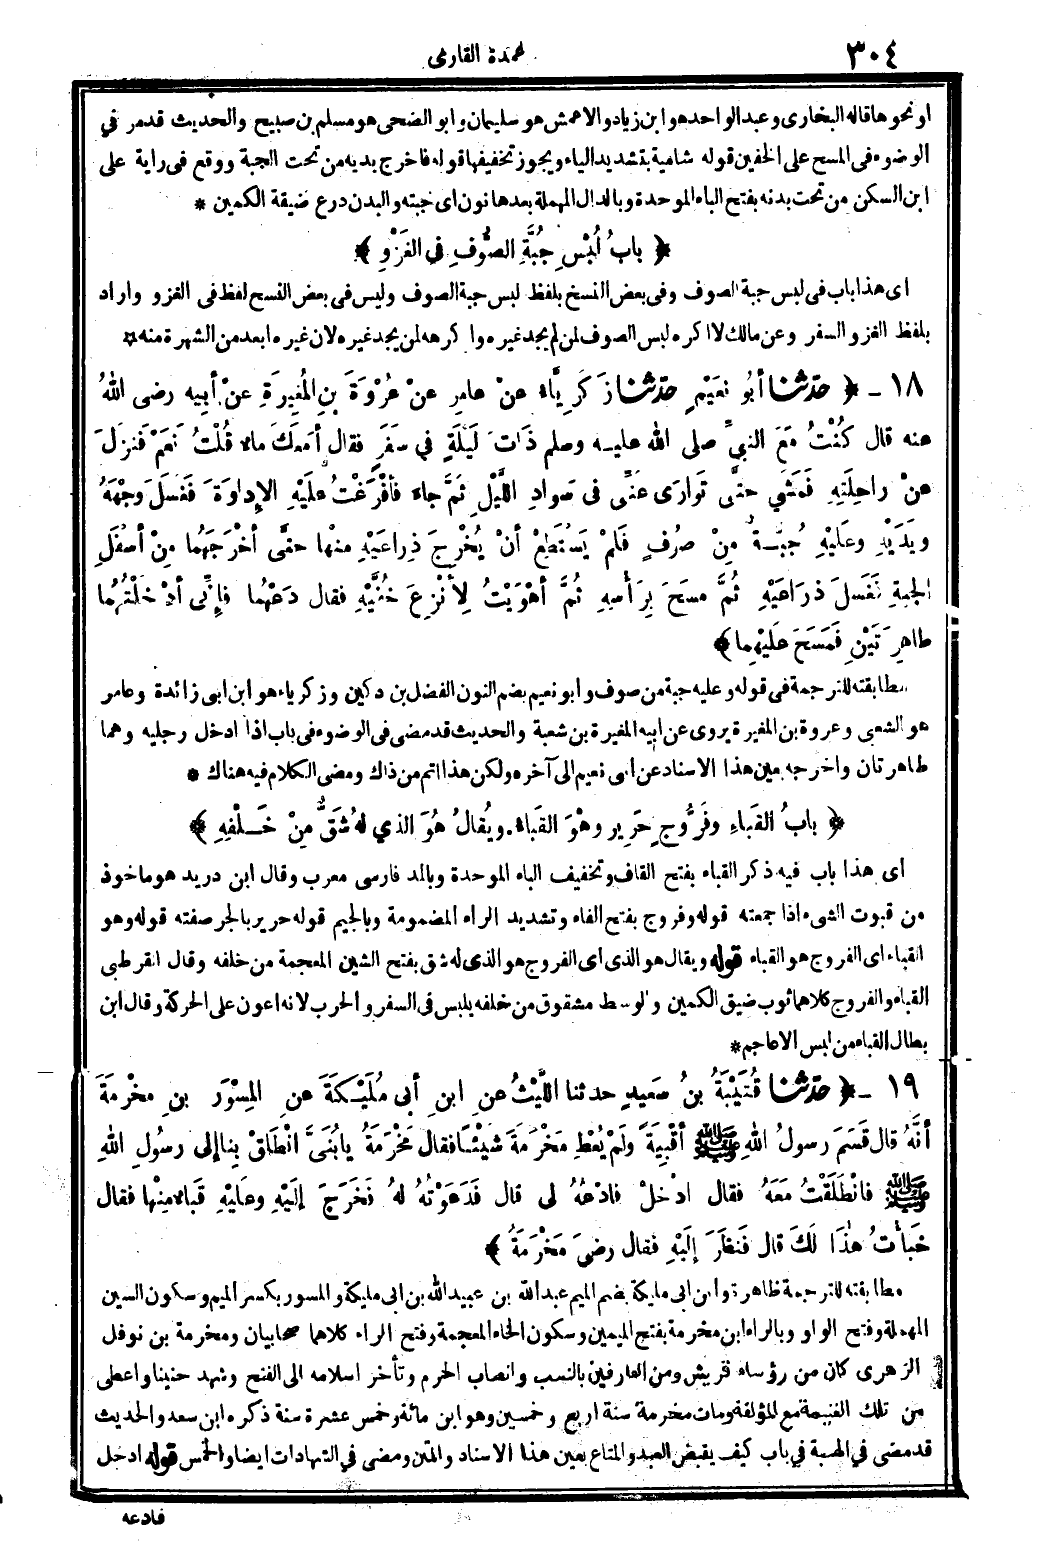 ٣٠٤
عمدة القارى
او نحوها قاله البخارى وعبد الواحد هو ابن زياد والاعمش هو سليمان وابو الضحى هو مسلم بن صبيح والحديث قد مر في
الوضوء فى المسح على الخفين قوله شامية بتشديد الياء ويجوز تخفيفها قوله فاخرج يديه من تحت الجبة ووقع فى راية على
ابن السكن من تحت بدنه بفتح الباء الموحدة وبالدال المهملة بعدها نون اى جبته والبدن درع ضيقة الكمين *
﴿ بابُ لُبْسِ جُبَّةِ الصُّوفِ فِي الغَزْوِ ﴾
اى هذا باب فى لبس جبة الصوف وفى بعض النسخ بلفظ لبس جبة الصوف وليس فى بعض النسخ لفظ فى الغزو واراد
بلفظ الغزو السفر وعن مالك لا اكره لبس الصوف لمن لم يجد غيره وا كرهه لمن يجد غيره لان غيره ابعد من الشهرة منه *
١٨ ـ ﴿ حدّثنا أبُو نعَيْمٍ حدّثنا زَكَرِيَّاء عنْ عامِرٍ عنْ عُرْوَةَ بنِ المُغِيرَةِ عنْ أبِيه رضى اللهُ
عنه قال كُنْتُ مَعَ النبيِّ صلى الله عليه وسلم ذَاتَ لَيْلَةٍ فِي سَفَرٍ فقال أمَعَكَ ماء قُلْتُ نَعَمْ فَنزَلَ
عنْ راحِلَتِهِ فَمَشَي حتَّى تَوارَى عَنِّى فى سَوادِ اللَّيْلِ ثُمَّ جاء فأفْرَغْتُ علَيْهِ الإِداوَةَ فَغَسَلَ وجْهَهُ
ويَدَيْهِ وعَلَيْهِ جُبَّةٌ مِنْ صُوفٍ فَلمْ يَسْتَطِعْ أنْ يُخْرِجَ ذِراعَيْهِ مِنْها حتَّى أخْرَجَهُما مِنْ أسْفَلِ
الجبةِ فَغَسلَ ذرَاعَيْهِ ثُمَّ مسَحَ بِرَأسهِ ثُمَّ أهْوَيْتُ لِأنْزِعَ خُفَّيْهِ فقال دَعْهُما فإِنِّى أدْخَلْتُهُما
طاهِرَتَيْنِ فَمَسَحَ عَلَيْهِما ﴾
مطابقته للترجمة فى قوله وعليه جبة من صوف وابو نعيم بضم النون الفضل بن دكين وزكرياء هو ابن ابى زائدة وعامر
هو الشعبى وعروة بن المغيرة يروى عن ابيه المغيرة بن شعبة والحديث قد مضى فى الوضوء فى باب اذا ادخل رجليه وهما
طاهرتان واخرجه بعين هذا الاسناد عن ابى نعيم الى آخره ولكن هذا اتم من ذاك ومضى الكلام فيه هناك *
﴿ بابُ القَباءِ وفَرُّوجِ حَرِيرٍ وهْوَ القَباء. ويُقالُ هُوَ الذي لهُ شَقٌّ مِنْ خَلْفِهِ ﴾
اى هذا باب فيه ذكر القباء بفتح القاف وتخفيف الباء الموحدة وبالمد فارسى معرب وقال ابن دريد هو ماخوذ
من قبوت الشىء اذا جمعته قوله وفروج بفتح الفاء وتشديد الراء المضمومة وبالجيم قوله حرير بالجر صفته قوله وهو
القباء اى الفروج هو القباء قوله ويقال هو الذى اى الفروج هو الذى له شق بفتح الشين المعجمة من خلفه وقال القرطبى
القباء والفروج كلاهما ثوب ضيق الكمين والوسط مشقوق من خلفه يلبس فى السفر والحرب لانه اعون على الحركة وقال ابن
بطال القباء من لبس الاعاجم *
١٩ ـ ﴿ حدّثنا قُتَيْبَةُ بنُ سَعِيدٍ حدثنا اللَّيْثُ عنِ ابنِ أبى مُلَيْكَةَ عنِ المِسْوَرِ بنِ مخْرمَةَ
أنَّهُ قال قَسَمَ رسولُ اللهِ ﷺ أقْبِيَةً ولَمْ يُعْطِ مَخْرَمَةَ شَيْئًا فقال مَخْرَمَةُ يابُنَىَّ انْطَلِقْ بِنا إلى رسولِ اللهِ
ﷺ فانْطَلَقْتُ مَعَهُ فقال ادْخلْ فادْعُهُ لى قال فَدَعَوْتُهُ لهُ فَخَرَجَ إلَيْهِ وعَلَيْهِ قَباء مِنْها فقال
خَبأْتُ هذَا لَكَ قال فَنَظَرَ إلَيْهِ فقال رضىَ مَخْرَمَةُ ﴾
مطابقته للترجمة ظاهرة وابن ابى مليكة بضم الميم عبد الله بن عبيد الله بن ابى مليكة والمسور بكسر الميم وسكون السين
المهملة وفتح الواو وبالراء ابن مخرمة بفتح الميمين وسكون الخاء المعجمة وفتح الراء كلاهما صحابيان ومخرمة بن نوفل
الزهرى كان من رؤساء قريش ومن العارفين بالنسب وانصاب الحرم وتأخر اسلامه الى الفتح وشهد حنينا واعطى
من تلك الغنيمة مع المؤلفة ومات مخرمة سنة اربع وخمسين وهو ابن مائة وخمس عشرة سنة ذكره ابن سعد والحديث
قد مضى في الهبة في باب كيف يقبض العبد والمتاع بعين هذا الاسناد والمتن ومضى في الشهادات ايضا والخمس قوله ادخل
فادعه